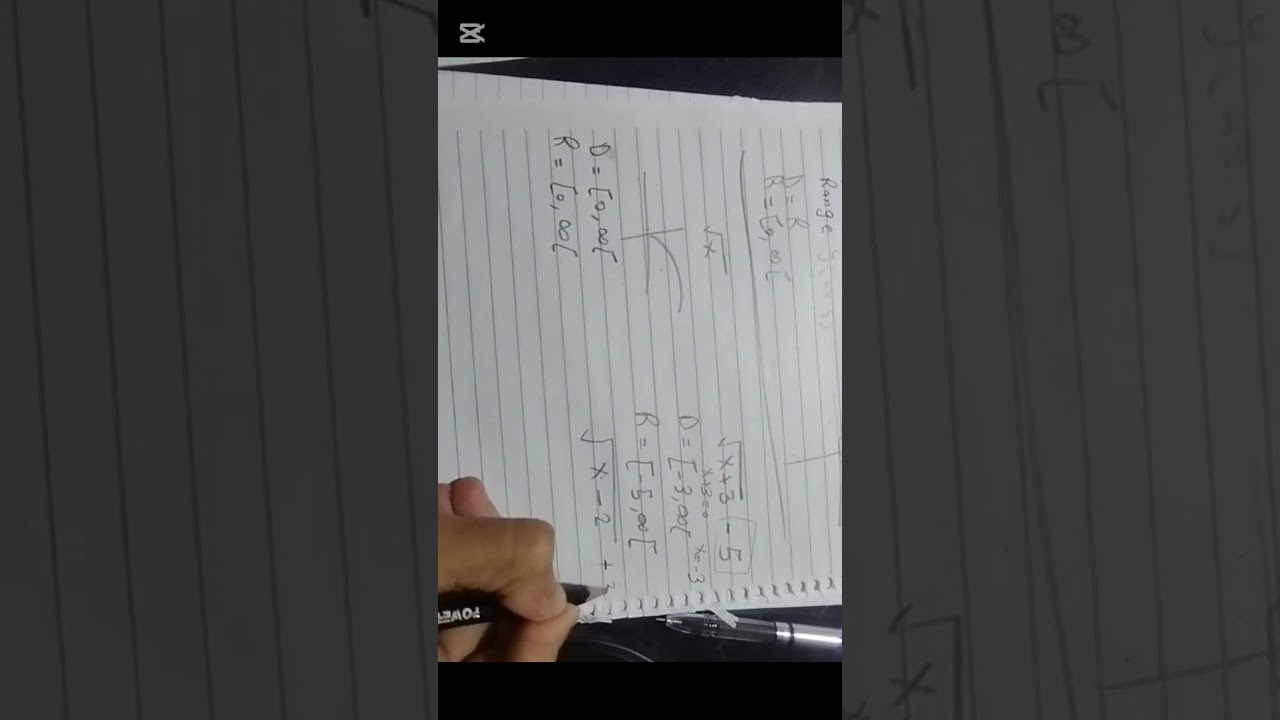 Range
D = R
R = [0, ∞[
√x
D = [0, ∞[
R = [0, ∞[
√x+3 - 5
x+3=0 x=-3
D = [-3, ∞[
R = [-5, ∞[
√x-2 +
POWER